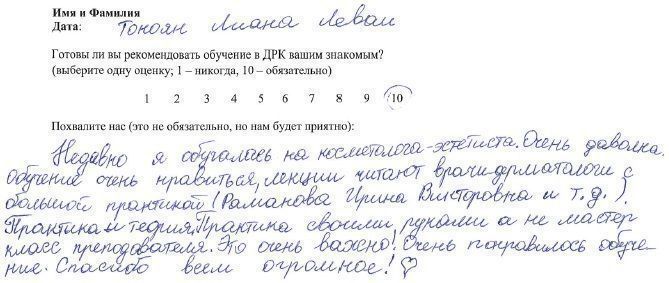 Имя и Фамилия
Дата: Тоноян Лиана Левон
Готовы ли вы рекомендовать обучение в ДРК вашим знакомым?
(выберите одну оценку; 1 – никогда, 10 – обязательно)
1 2 3 4 5 6 7 8 9 10
Похвалите нас (это не обязательно, но нам будет приятно):
Недавно я обучалась на косметолога-эстетиста. Очень давольна.
обучение очень нравиться, лекции читают врачи-дерматологи с
большой практикой (Раманова Ирина Викторовна и т.д.).
Практика и теория. Практика своими руками а не мастер
класс преподователя. Это очень важно! Очень понравилось обуче-
ние. Спасибо всем огромное!